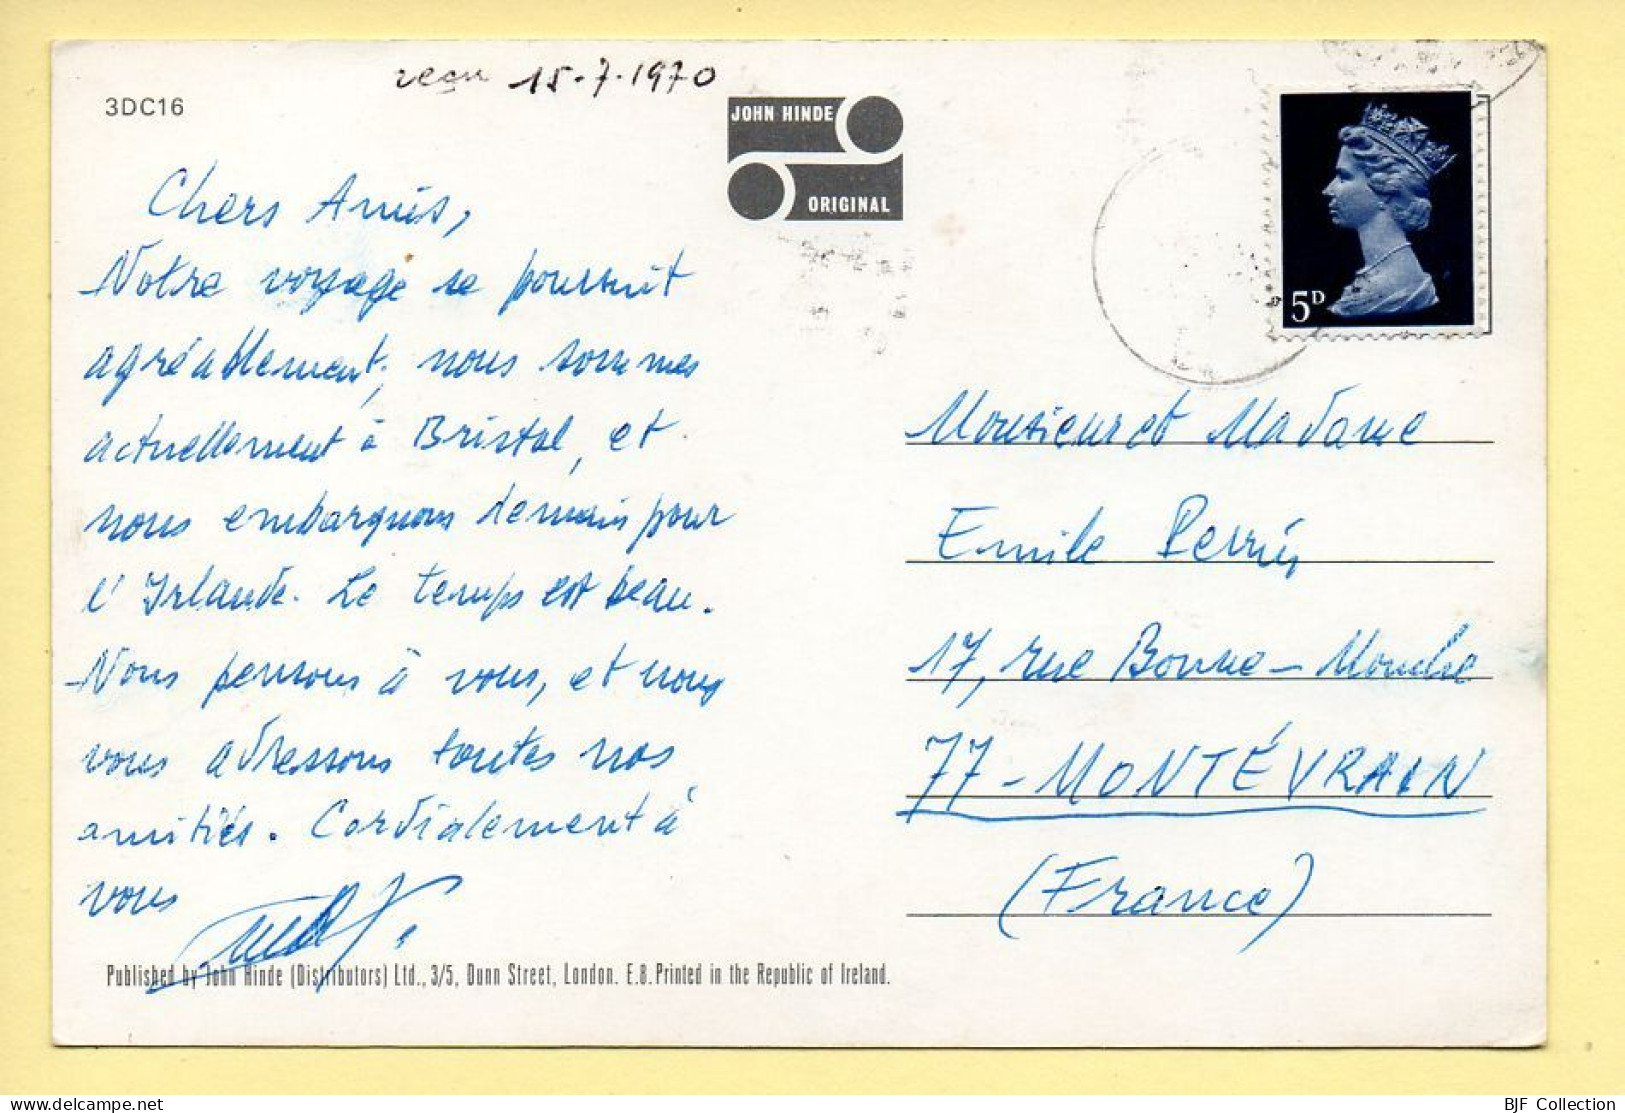 recu 15.7.1970
3DC16
JOHN HINDE
ORIGINAL
5D
Chers Amis,
Notre voyage se poursuit
agréablement, nous sommes
actuellement à Bristol, et
nous embarquons demain pour
l'Irlande. Le temps est beau.
Nous pensons à vous, et nous
vous adressons toutes nos
amitiés. Cordialement à
vous
Monsieur et Madame
Emile Perrin
17, rue Bonne-Mouche
77-MONTÉVRAIN
(France)
Published by John Hinde (Distributors) Ltd., 3/5, Dunn Street, London. E.8. Printed in the Republic of Ireland.
delcampe.net
BJF Collection